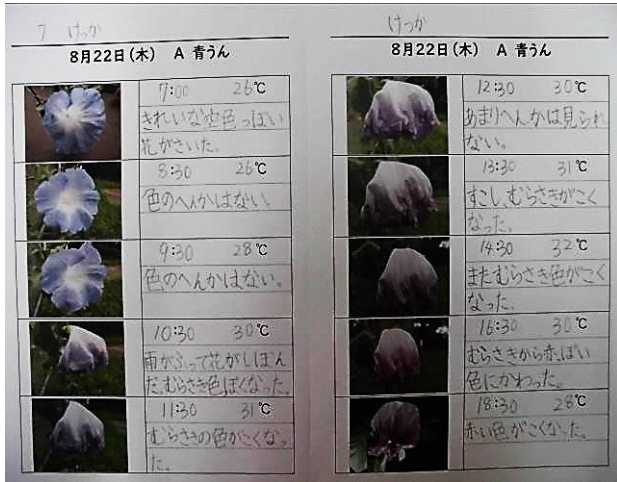 7 けっか
8月22日(木) A 青うん
7:00 26℃
きれいな空色っぽい
花がさいた。
8:30 26℃
色のへんかはない。
9:30 28℃
色のへんかはない。
10:30 30℃
雨がふって花がしぼん
だ。むらさき色ぽくなった。
11:30 31℃
むらさきの色がこくなっ
た。
けっか
8月22日(木) A 青うん
12:30 30℃
あまりへんかは見られ
ない。
13:30 31℃
すこし、むらさきがこく
なった。
14:30 32℃
またむらさき色がこく
なった。
16:30 30℃
むらさきから赤っぽい
色にかわった。
18:30 28℃
赤い色がこくなった。